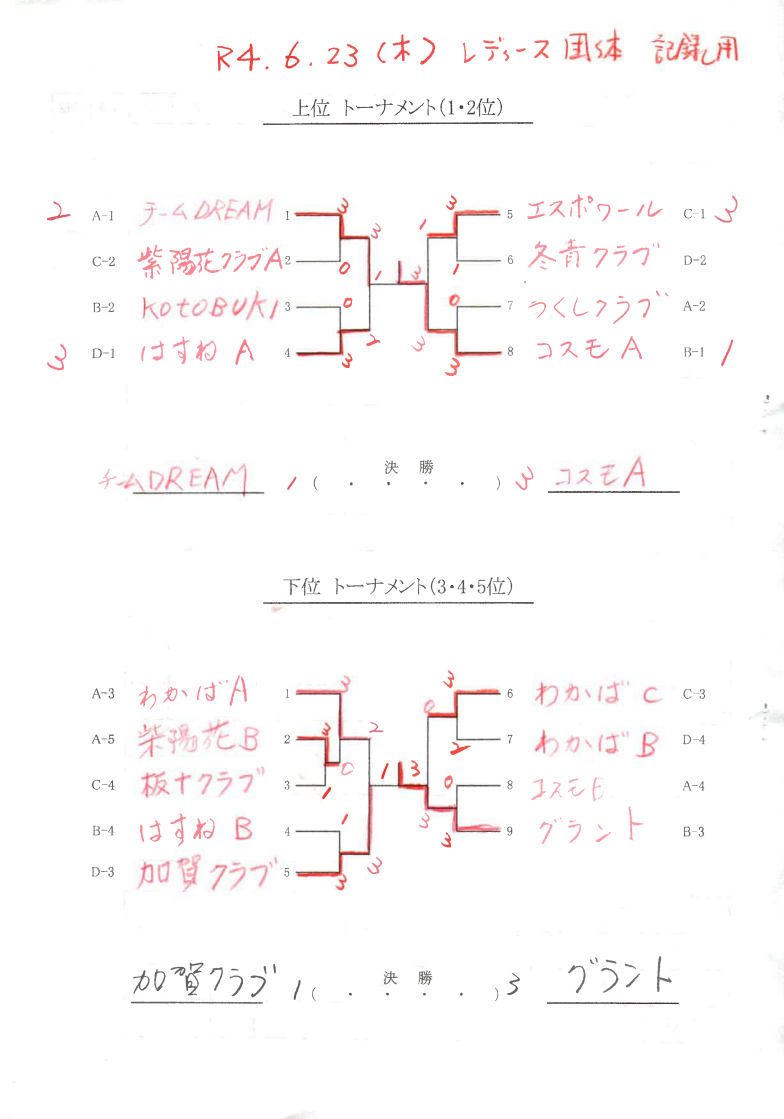 R4.6.23(木) レディース団体 記録用
上位 トーナメント(1・2位)
2 A-1 チームDREAM 1 3 3 5 エスポワール C-1 3
3 1
C-2 紫陽花クラブA 2 0 1 3 1 6 冬青クラブ D-2
B-2 KOtOBUKI 3 0 0 7 つくしクラブ A-2
2 3
3 D-1 はすねA 4 3 3 8 コスモA B-1 1
決勝
チームDREAM 1 ( ・ ・ ・ ・ ) 3 コスモA
下位 トーナメント(3・4・5位)
A-3 わかばA 1 3 3 6 わかばC C-3
2 0
A-5 紫陽花B 2 3 2 7 わかばB D-4
0 1 3
C-4 板十クラブ 3 1 0 8 コスモE A-4
B-4 はすねB 4 1 3 3 9 グラント B-3
D-3 加賀クラブ 5 3 3
決勝
加賀クラブ 1 ( ・ ・ ・ ・ ) 3 グラント